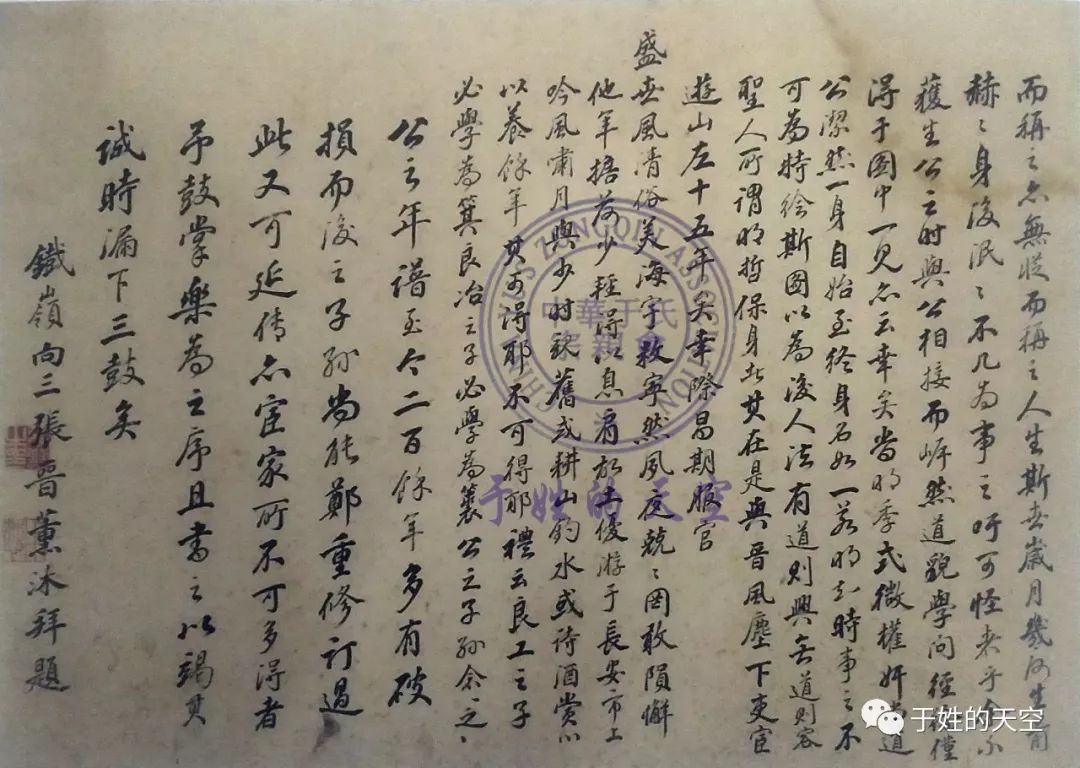 而稱之亦無從而稱之人生斯世歲月幾何生前
赫々身後泯々不几為事之吁可怪者乎余不
獲生公之时與公相接而岸然道貌學问徑僅
得于圖中一見亦云幸矣當明季式微權奸道
公潔然一身自始至終身名如一若明知時事之不
可為特绘斯圖以為後人法有道則興無道則容
聖人所谓明哲保身者其在是與晋風塵下吏宦
遊山左十五年矣幸際昌期服官
盛世風清俗美海宇敉寧然夙夜兢々罔敢隕懈
他年擔荷少輕得以息肩於土優游于長安市上
吟風嘯月與少时親舊或耕山钓水或诗酒赏心
以養餘年其可得耶不可得耶禮云良工之子
必學為箕良冶之子必學為裘公之子孫念之々
公之年谱至今二百餘年多有破
損而後之子孫尚能鄭重修订過
此又可延传亦宦家所不可多得者
予鼓掌樂為之序且書之以竭其
诚時漏下三鼓矣
鐵嶺向三張晋薰沐拜題
CHINA YU'S ZONGQIN ASSOCIATION
中華于氏
宗親會
于姓的天空
于姓的天空